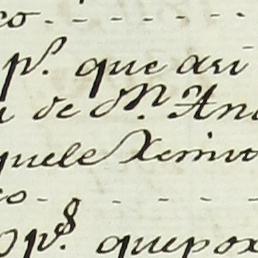 co - - - - - -
pr. que asi
a de Dn. An
quele Xemir
co - - - - -
Op.s quepor